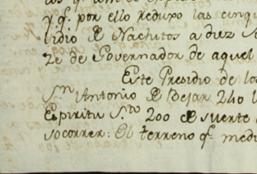 y q.e por ello reduxo las cinqu
sidio de Nachitos a diez S
ze de Governador de aquel
Este Presidio de los
Sn Antonio de Bejar 240 l
Espiritu S.to 200 de suerte
socorrer: El terreno q.e medi